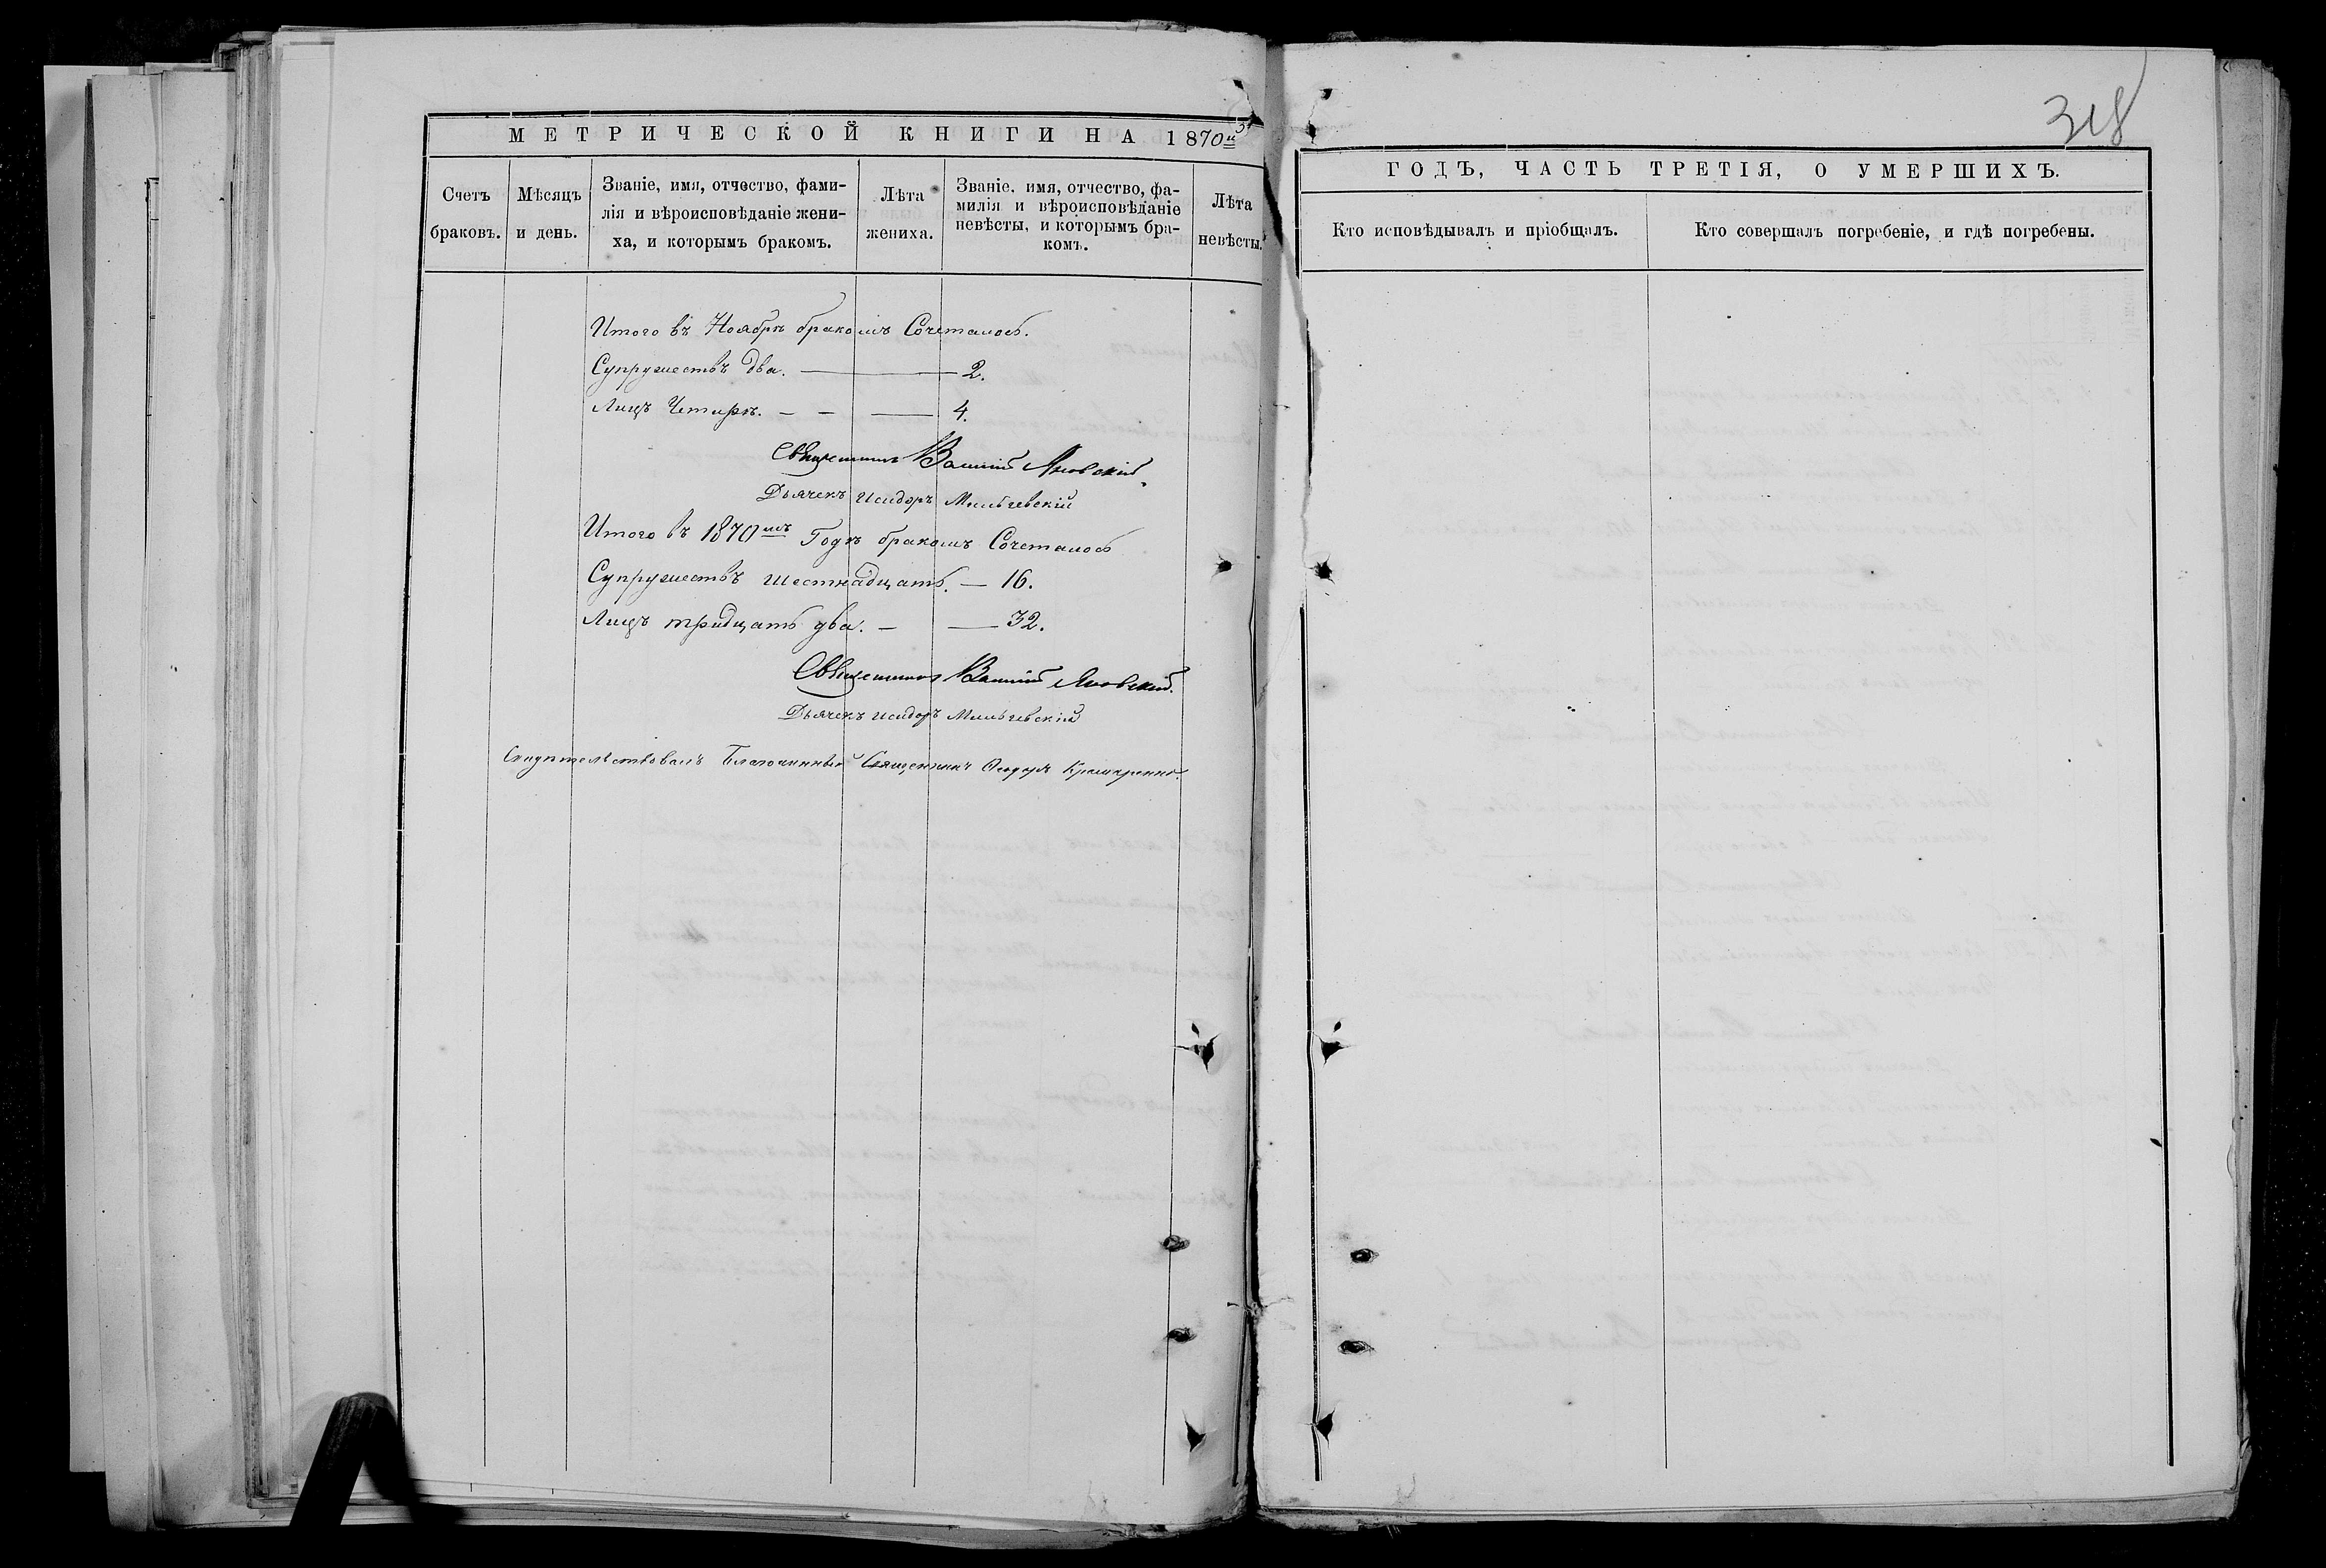 МЕТРИЧЕСКОЙ КНИГИ НА 1870й
Счетъ браковъ.
Мѣсяцъ и день.
Званіе, имя, отчество, фами-
лія и вѣроисповѣданіе жени-
ха, и которымъ бракомъ.
Лѣта жениха.
Званіе, имя, отчество, фа-
милія и вѣроисповѣданіе
невѣсты, и которымъ бра-
комъ.
Лѣта невѣсты.
Итого въ Ноябрѣ бракомъ Сочеталось.
Супружествъ два. — 2.
Лицъ Четырѣ. — — — 4.
Священникъ Яновскій.
Дьячекъ Исидоръ Мильчевскій
Итого въ 1870мъ Годѣ бракомъ Сочеталось
Супружествъ шестнадцать. — 16.
Лицъ тридцать два. — — 32.
Священникъ Яновскій.
Дьячекъ Исидоръ Мильчевскій
Свидѣтельствовалъ Благочинный Священникъ Ѳеодоръ
318
ГОДЪ, ЧАСТЬ ТРЕТІЯ, О УМЕРШИХЪ.
Кто исповѣдывалъ и пріобщалъ.
Кто совершалъ погребеніе, и гдѣ погребены.